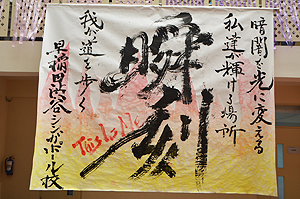 暗闇を光に変える
私達が輝ける場所
瞬刻
This Is Me
我が道を歩く
早稲田渋谷シンガポール校